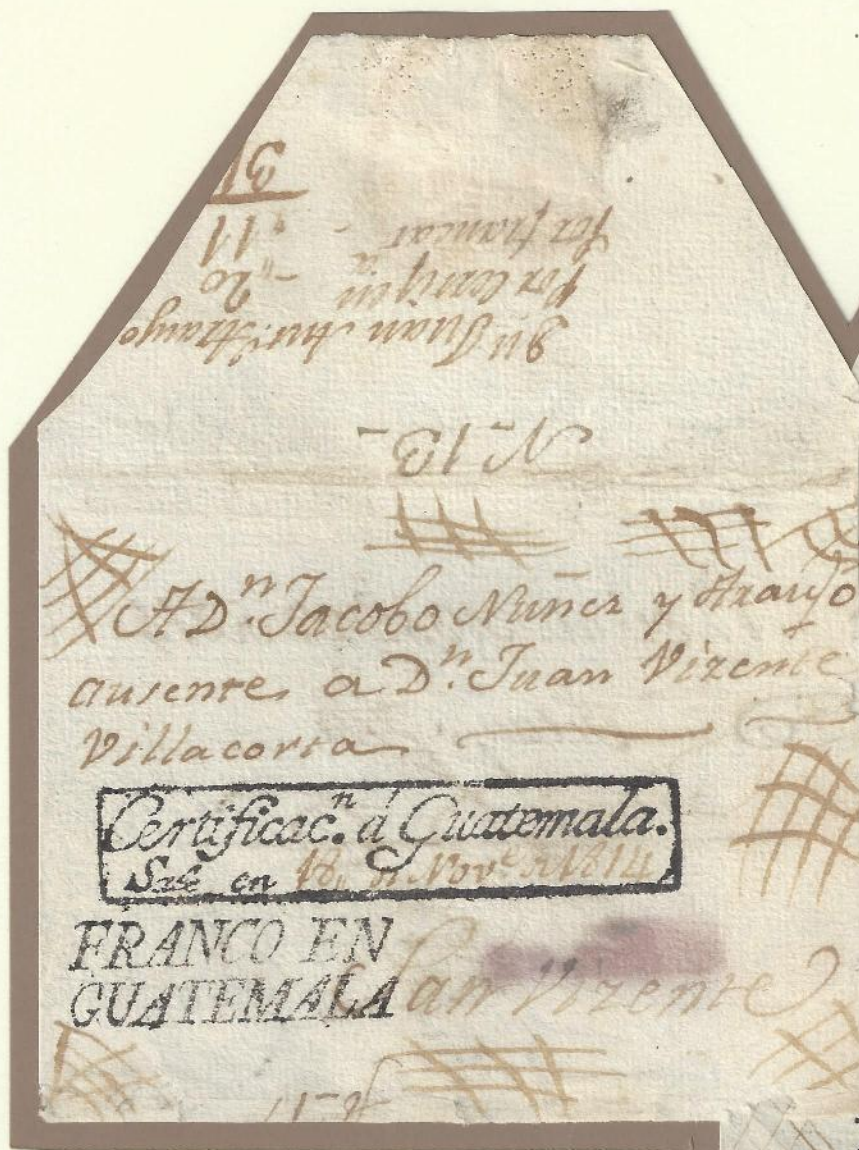 31
Por francar - „ 11
Por Certif.on - „ 20
Dn Juan Ant.o Araujo
N. 13 -
A Dn. Jacobo Nuñez y Araujo
ausente a Dn. Juan Vizente
Villacorta
Certificac.n á Guatemala.
Sale en 18 de Nov.e de 1814
FRANCO EN
GUATEMALA
San Vizente